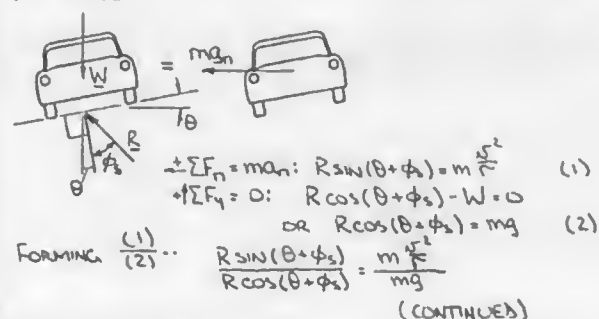 W = ma_n
θ
R
φ_s
θ
±ΣF_n = ma_n: R sin(θ+φ_s) = m v²/r (1)
+↑ΣF_y = 0: R cos(θ+φ_s) - W = 0
OR R cos(θ+φ_s) = mg (2)
FORMING (1)/(2) .. R sin(θ+φ_s)/R cos(θ+φ_s) = m v²/r / mg
(CONTINUED)